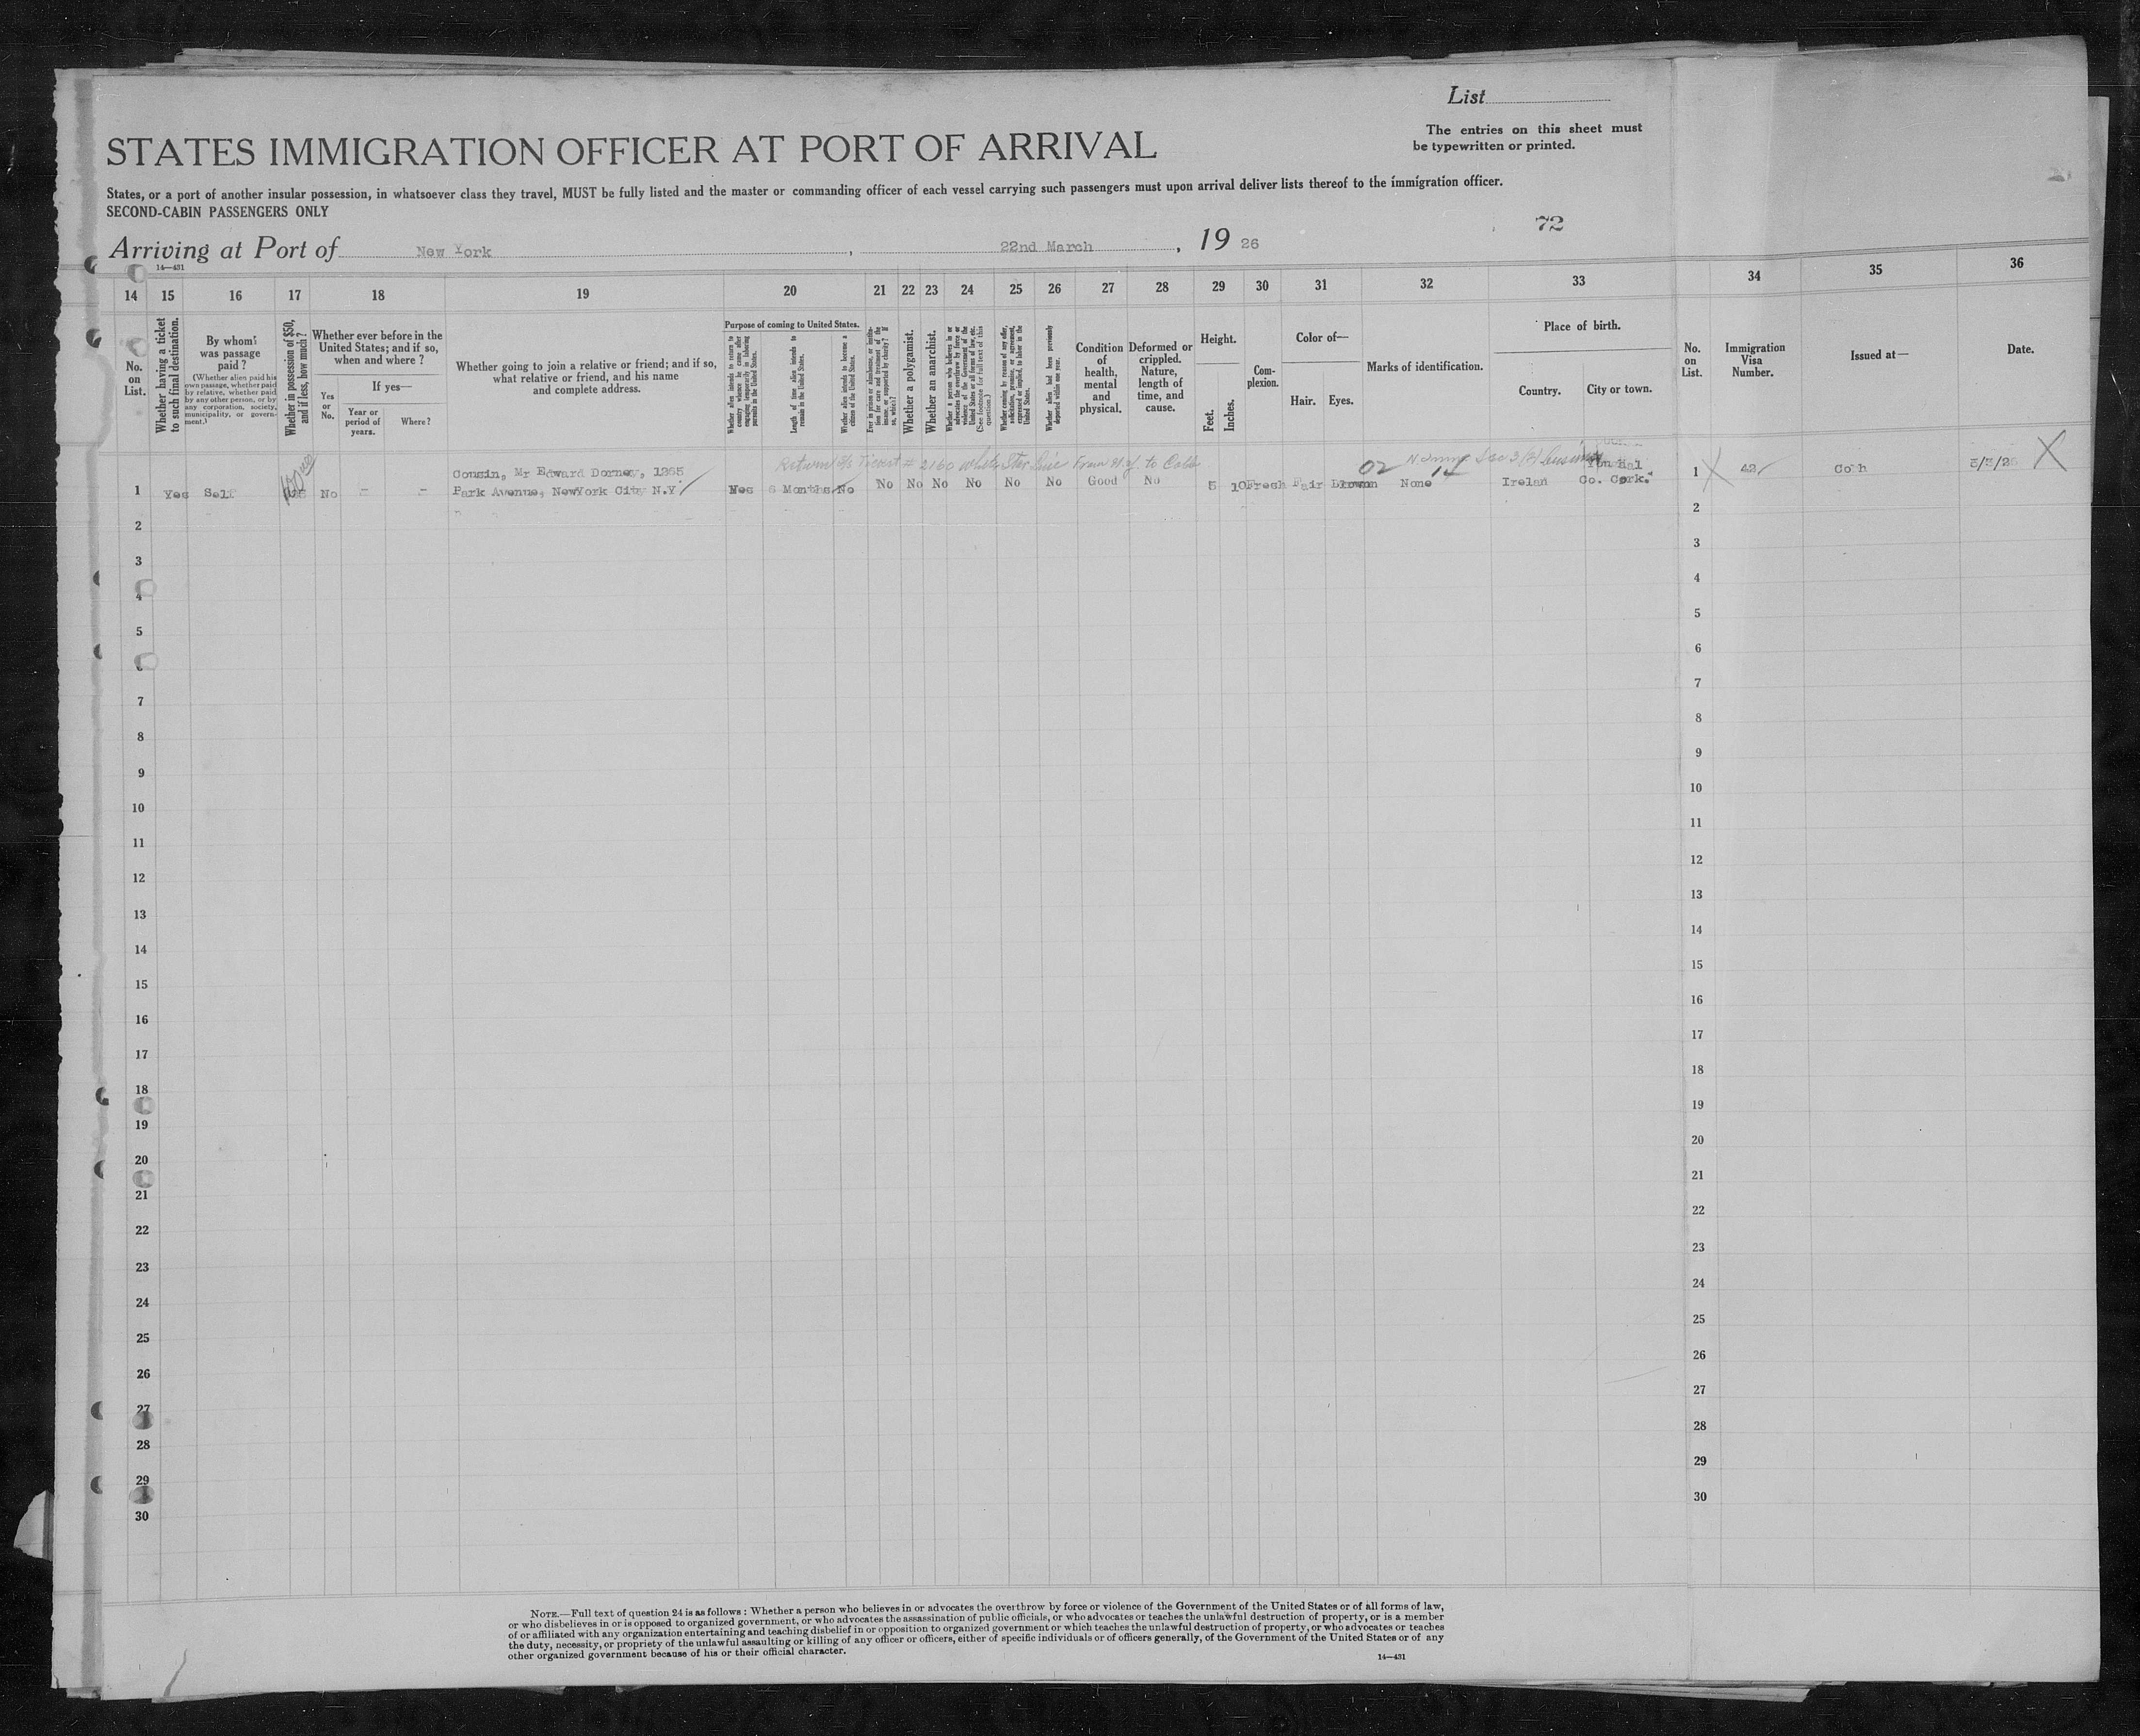 List
The entries on this sheet must
be typewritten or printed.
STATES IMMIGRATION OFFICER AT PORT OF ARRIVAL
States, or a port of another insular possession, in whatsoever class they travel, MUST be fully listed and the master or commanding officer of each vessel carrying such passengers must upon arrival deliver lists thereof to the immigration officer.
SECOND-CABIN PASSENGERS ONLY
72
Arriving at Port of New York, 22nd March, 19 26
14—431
14 15 16 17 18 19 20 21 22 23 24 25 26 27 28 29 30 31 32 33 34 35 36
No.
on
List.
Whether having a ticket
to such final destination.
By whom
was passage
paid?
(Whether alien paid his
own passage, whether paid
by relative, whether paid
by any other person, or by
any corporation, society,
municipality, or govern-
ment.)
Whether in possession of $50,
and if less, how much?
Whether ever before in the
United States; and if so,
when and where?
Yes
or
No.
If yes—
Year or
period of
years.
Where?
Whether going to join a relative or friend; and if so,
what relative or friend, and his name
and complete address.
Purpose of coming to United States.
Whether alien intends to return to
country whence he came after
engaging temporarily in laboring
pursuits in the United States.
Length of time alien intends to
remain in the United States.
Whether alien intends to become a
citizen of the United States.
Ever in prison or almshouse, or institu-
tion for care and treatment of the
insane, or supported by charity? If
so, which?
Whether a polygamist.
Whether an anarchist.
Whether a person who believes in or
advocates the overthrow by force or
violence of the Government of the
United States or all forms of law, etc.
(See footnote for full text of this
question.)
Whether coming by reason of any offer,
solicitation, promise, or agreement,
expressed or implied, to labor in the
United States.
Whether alien had been previously
deported within one year.
Condition
of
health,
mental
and
physical.
Deformed or
crippled.
Nature,
length of
time, and
cause.
Height.
Feet.
Inches.
Com-
plexion.
Color of—
Hair. Eyes.
Marks of identification.
Place of birth.
Country. City or town.
No.
on
List.
Immigration
Visa
Number.
Issued at—
Date.
Return Ticket # 2160 White Star Line From N.Y. to Cobh
02 14 Sec 3 (2) business
Cousin, Mr Edward Dorney, 1265
1 Yes Self No – – Park Avenue, NewYork City N.Y. Yes 6 Months No No No No No No No Good No 5 10 Fresh Fair Brown None Irelan Co. Cork. 1 X 42 Co h X
2 2
3 3
4 4
5 5
6 6
7 7
8 8
9 9
10 10
11 11
12 12
13 13
14 14
15 15
16 16
17 17
18 18
19 19
20 20
21 21
22 22
23 23
24 24
25 25
26 26
27 27
28 28
29 29
30 30
NOTE.—Full text of question 24 is as follows: Whether a person who believes in or advocates the overthrow by force or violence of the Government of the United States or of all forms of law,
or who disbelieves in or is opposed to organized government, or who advocates the assassination of public officials, or who advocates or teaches the unlawful destruction of property, or is a member
of or affiliated with any organization entertaining and teaching disbelief in or opposition to organized government or which teaches the unlawful destruction of property, or who advocates or teaches
the duty, necessity, or propriety of the unlawful assaulting or killing of any officer or officers, either of specific individuals or of officers generally, of the Government of the United States or of any
other organized government because of his or their official character.
14—431